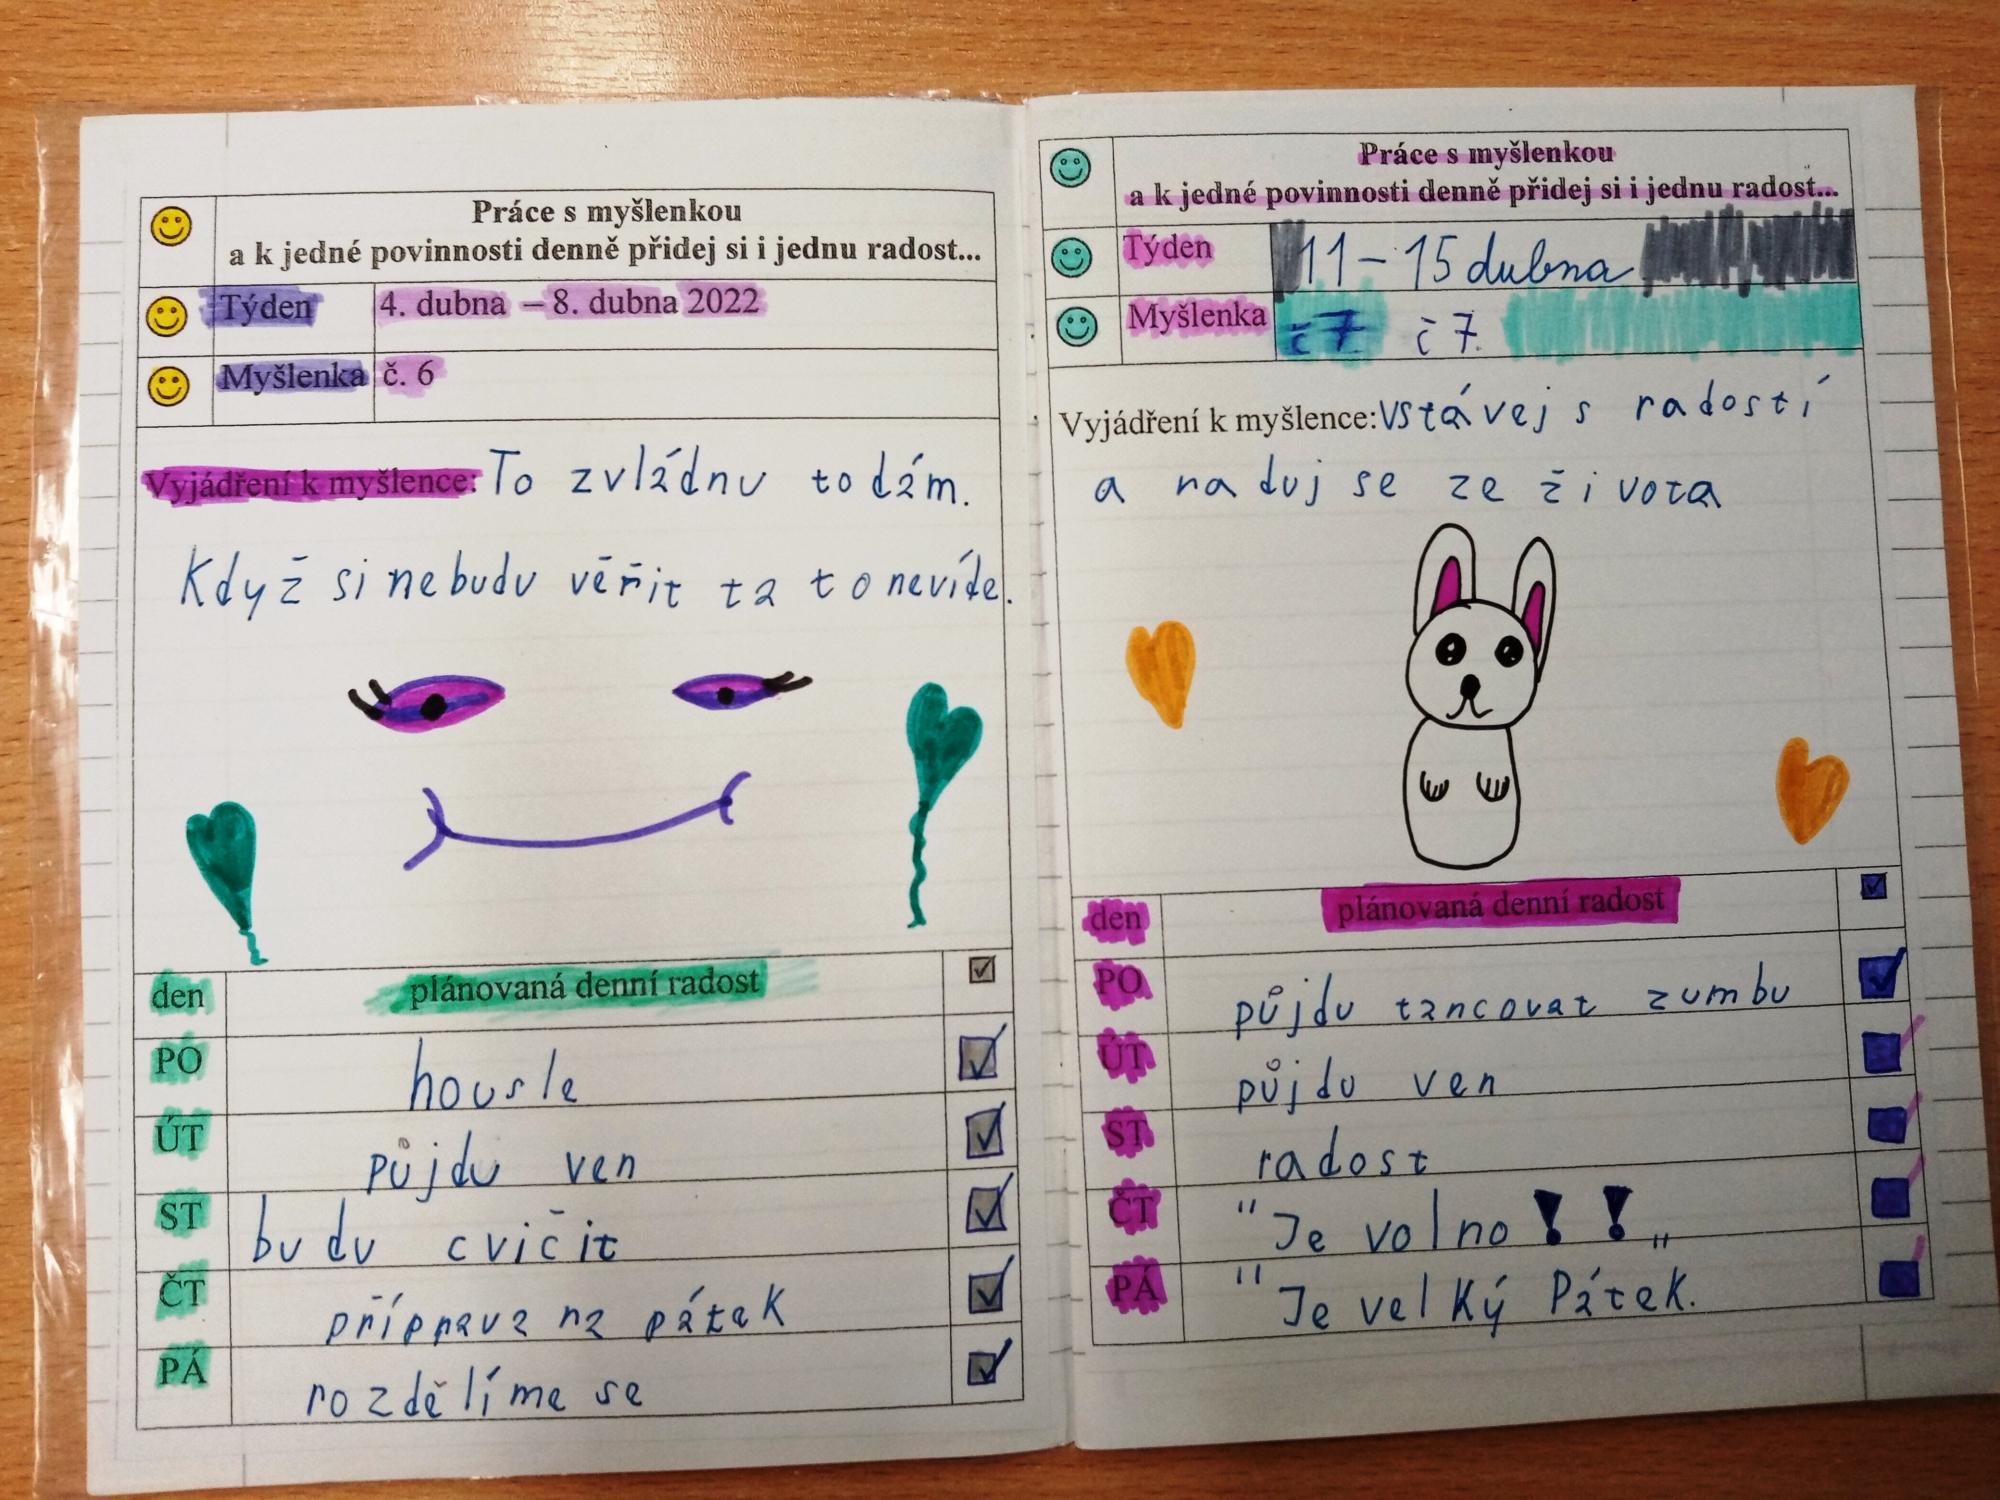 Práce s myšlenkou
a k jedné povinnosti denně přidej si i jednu radost...
Týden 4. dubna – 8. dubna 2022
Myšlenka č. 6
Vyjádření k myšlence: To zvládnu to dám.
Když si nebudu věřit ta to nevíde.
den plánovaná denní radost
PO housle
ÚT půjdu ven
ST budu cvičit
ČT příprava na pátek
PÁ rozdělíme se
Práce s myšlenkou
a k jedné povinnosti denně přidej si i jednu radost...
Týden 11 – 15 dubna
Myšlenka č 7 č 7.
Vyjádření k myšlence: Vstávej s radostí
a raduj se ze života
den plánovaná denní radost
PO půjdu tancovat zumbu
ÚT půjdu ven
ST radost
ČT "Je volno!! „
PÁ "Je velký Pátek.